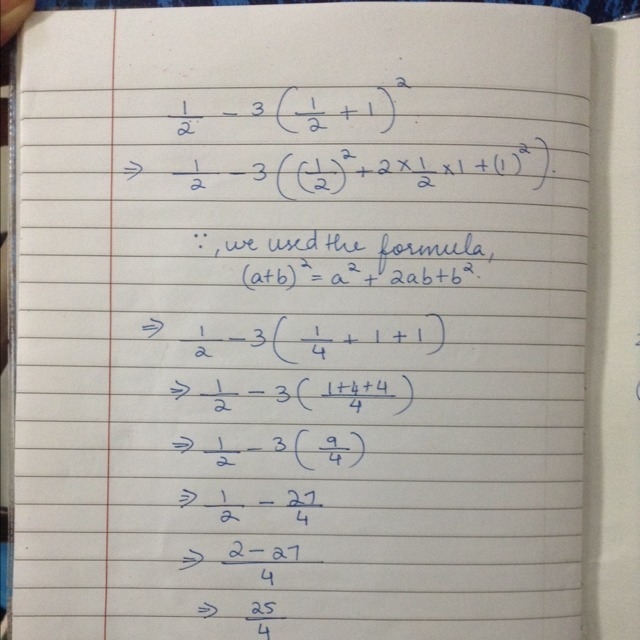 1/2 - 3(1/2 + 1)²
⇒ 1/2 - 3((1/2)² + 2×1/2×1 + (1)²).
∵, we used the formula,
(a+b)² = a² + 2ab+b².
⇒ 1/2 - 3(1/4 + 1 + 1)
⇒ 1/2 - 3((1+4+4)/4)
⇒ 1/2 - 3(9/4)
⇒ 1/2 - 27/4
⇒ (2-27)/4
⇒ 25/4